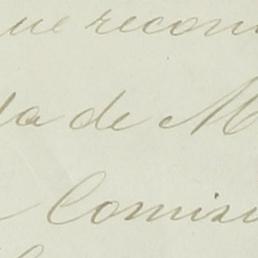 que recom
da de M
Comisi